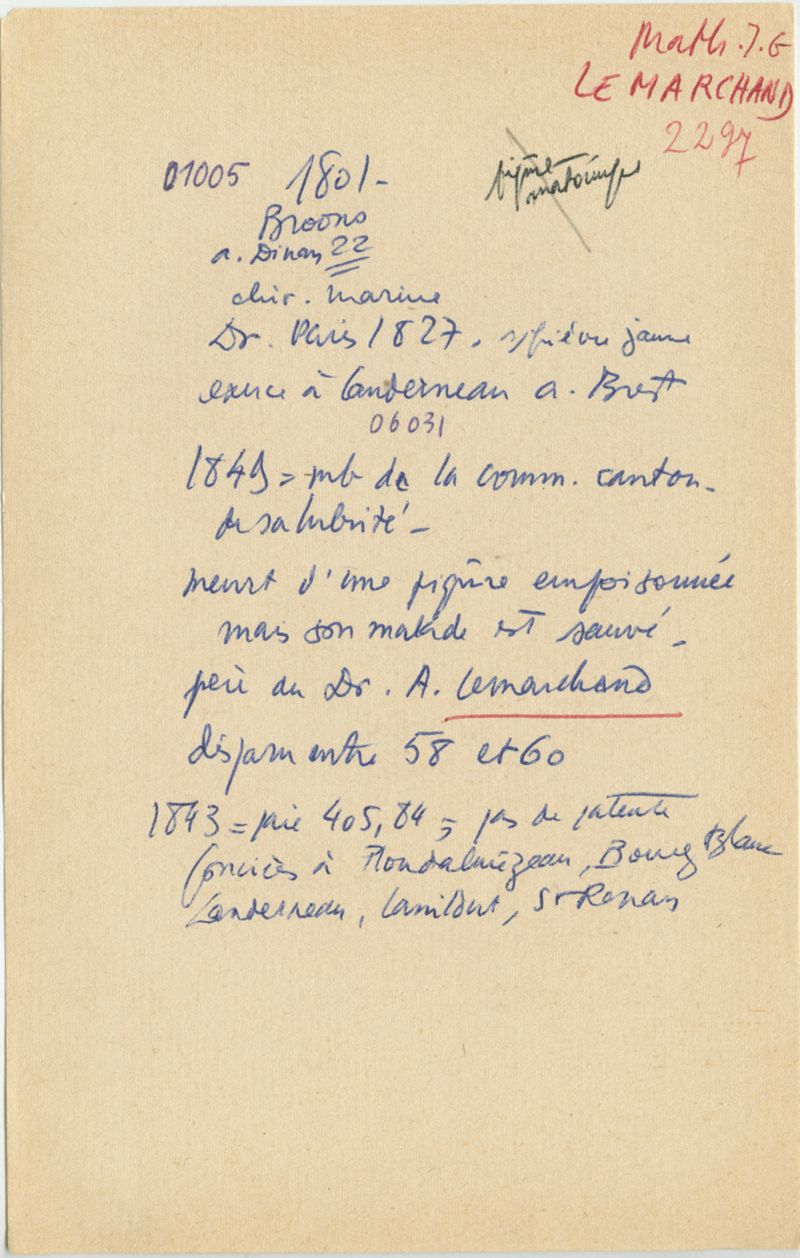 Math. J. G
LE MARCHAND
2297
01005 1801-
piqûre
anatomique
Broons
a. Dinan 22
chir. marine
Dr. Paris 1827. s/fièvre jaune
exerce à Landerneau a. Brest
06031
1849 = mb de la comm. canton.
de salubrité -
meurt d'une piqûre empoisonnée
mais son malade est sauvé -
père du Dr. A. Lemarchand
disparu entre 58 et 60
1843 = paie 405,84 = pas de patente
foncière à Ploudalmézeau, Bourg Blanc
Landerneau, Lanildut, St Renan